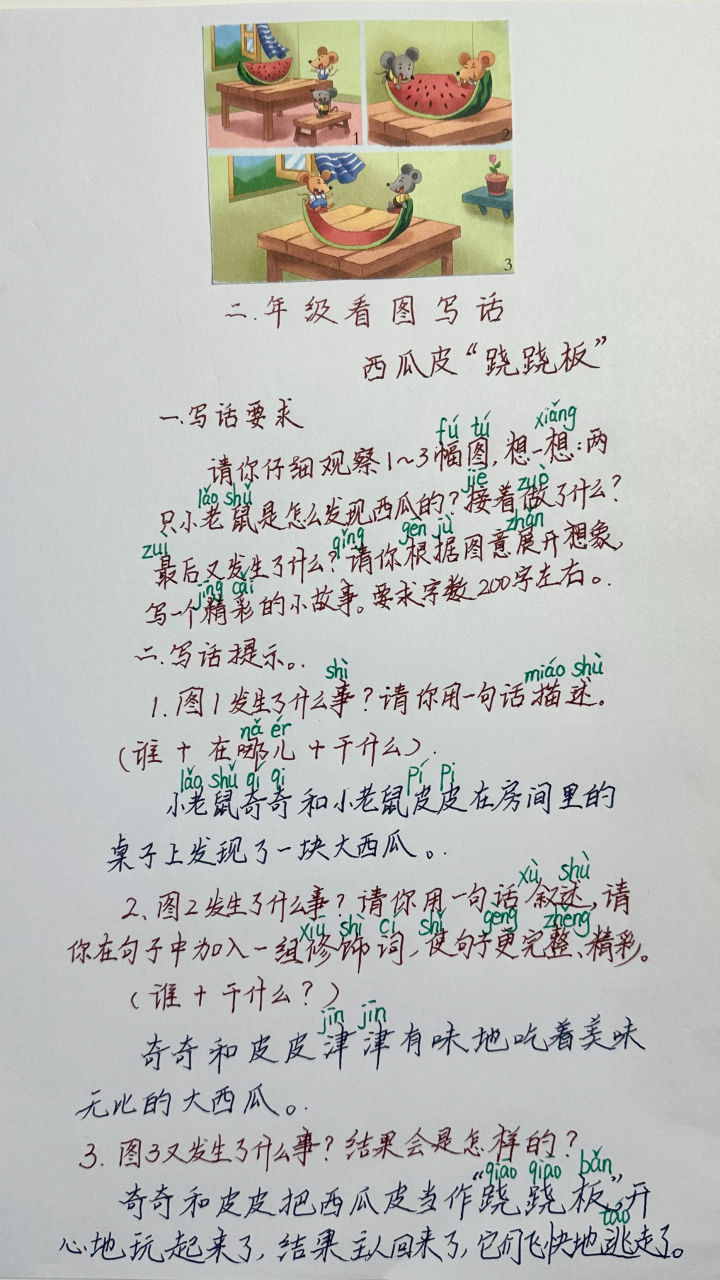 1
2
3
二.年级看图写话
西瓜皮“跷跷板”
一.写话要求
fú tú xiǎng
请你仔细观察1～3幅图,想一想:两
lǎo shǔ jiē zuò
只小老鼠是怎么发现西瓜的?接着做了什么?
zuì qǐng gēn jù zhǎn
最后又发生了什么?请你根据图意展开想象,
jīng cǎi
写一个精彩的小故事。要求字数200字左右。
二.写话提示。
shì miáo shù
1.图1发生了什么事?请你用一句话描述。
nǎ ér
(谁+在哪儿+干什么).
lǎo shǔ qí qi pí pi
小老鼠奇奇和小老鼠皮皮在房间里的
桌子上发现了一块大西瓜。
xù shù
2、图2发生了什么事?请你用一句话叙述,请
xiū shì cí shǐ gèng zhěng
你在句子中加入一组修饰词,使句子更完整、精彩。
(谁+干什么?)
jīn jīn
奇奇和皮皮津津有味地吃着美味
无比的大西瓜。
3.图3又发生了什么事?结果会是怎样的?
qiāo qiāo bǎn
奇奇和皮皮把西瓜皮当作“跷跷板”,开
táo
心地玩起来了,结果主人回来了,它们飞快地逃走了。